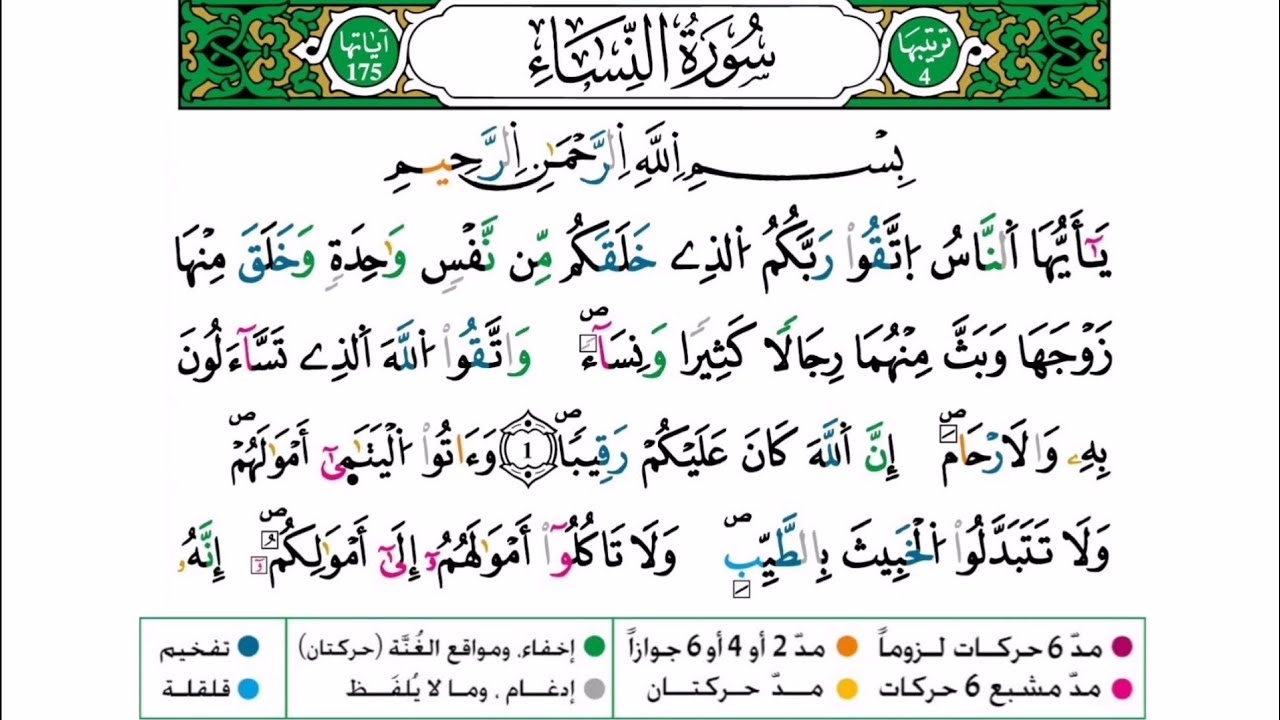 ترتيبها 4
سُورَةُ النِّسَاءِ
آياتها 175
بِسْمِ اِللَّهِ اِلرَّحْمَٰنِ اِلرَّحِيمِ
يَٰٓأَيُّهَا اَلنَّاسُ اُتَّقُواْ رَبَّكُمُ اُلذِے خَلَقَكُم مِّن نَّفْسٖ وَٰحِدَةٖ وَخَلَقَ مِنْهَا
زَوْجَهَا وَبَثَّ مِنْهُمَا رِجَالاٗ كَثِيراٗ وَنِسَآءٗ ص وَاتَّقُواْ اُللَّهَ اَلذِے تَسَّآءَلُونَ
بِهِۦ وَالَارْحَامَ ص إِنَّ اَللَّهَ كَانَ عَلَيْكُمْ رَقِيباٗ ص 1 وَءَاتُواْ اُلْيَتَٰمَىٰٓ أَمْوَٰلَهُمْ ص
وَلَا تَتَبَدَّلُواْ اُلْخَبِيثَ بِالطَّيِّبِ ص وَلَا تَاكُلُوٓاْ أَمْوَٰلَهُمُۥٓ إِلَىٰٓ أَمْوَٰلِكُمُۥٓ ص إِنَّهُۥ
مدّ 6 حركات لزوماً مدّ 2 أو 4 أو 6 جوازاً إخفاء، ومواقع الغُنَّة (حركتان) تفخيم
مدّ مشبع 6 حركات مدّ حركتان إدغام ، وما لا يُلفَظ قلقلة